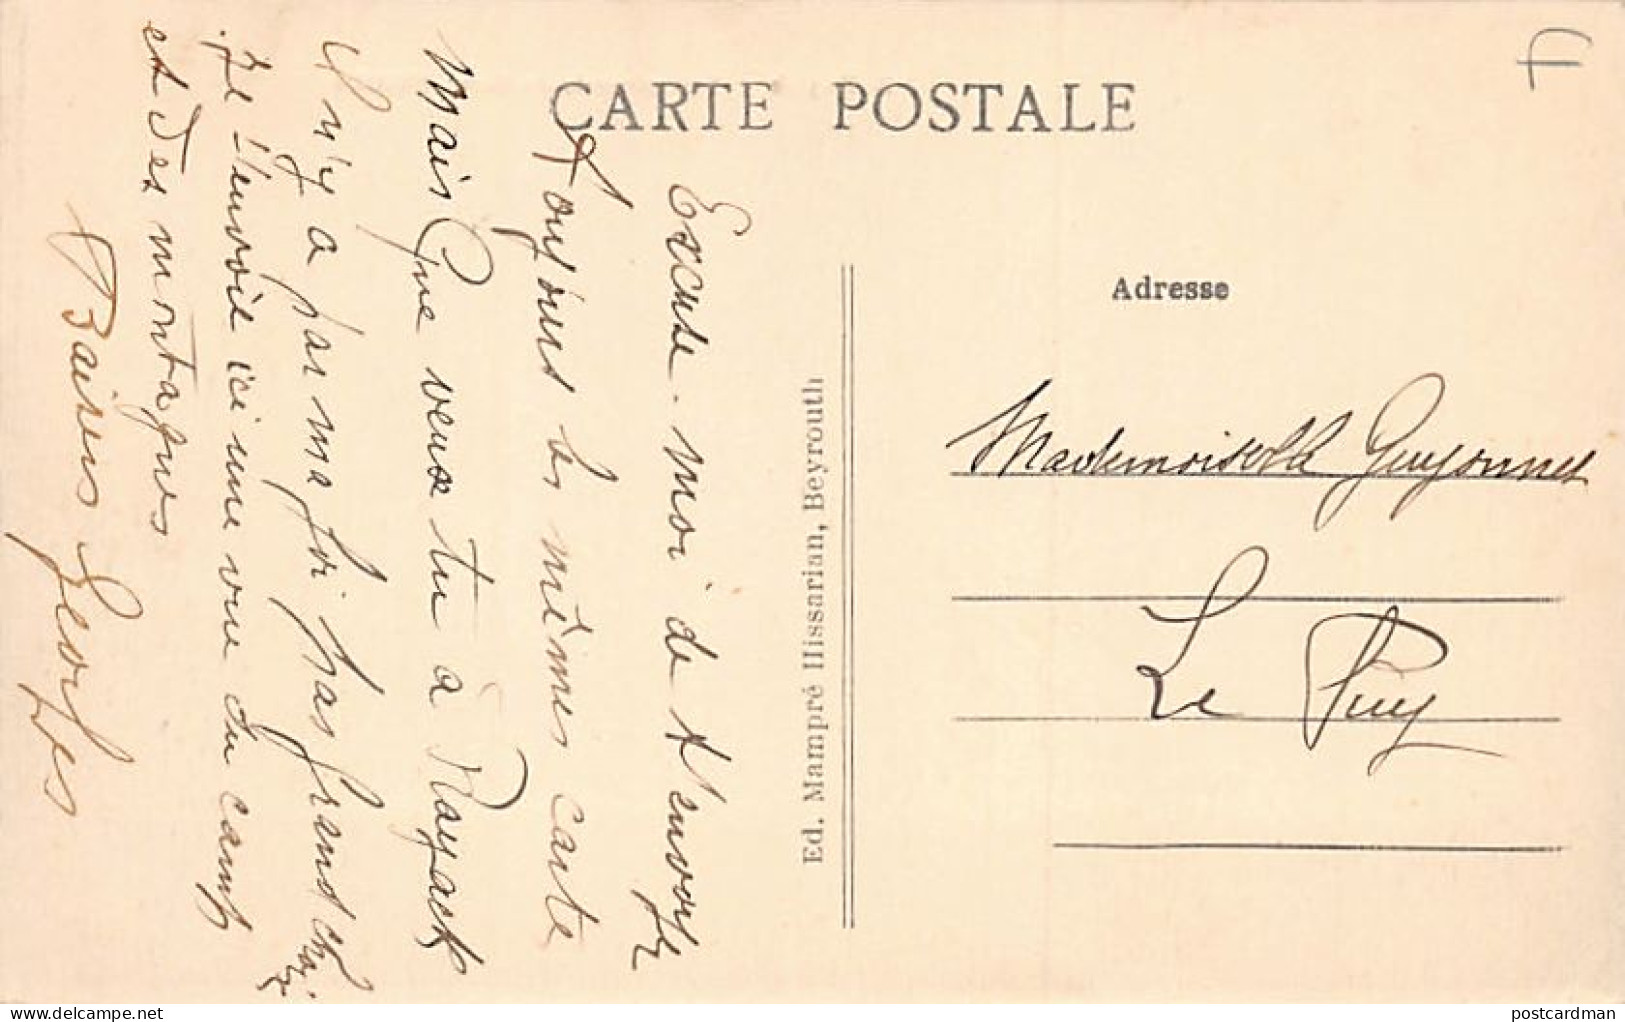 CARTE POSTALE
4
Excuse-moi de t'envoyer
toujours les mêmes carte
Mais que veux tu à Rayack
il n'y a pas ma foi pas grand choix
Je t'envoie ici une vue du camp
et des montagnes
Baisers Georges
Ed. Mampré Hissarian, Beyrouth
Adresse
Mademoiselle Guyonnet
Le Puy
delcampe.net
postcardman